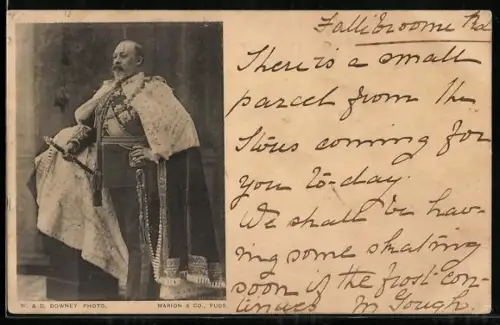 Fallibroome Rd
There is a small
parcel from the
Stores coming for
you to-day.
We shall be hav-
ing some skating
soon if the frost con-
tinues M Gough.
W. & D. DOWNEY PHOTO. MARION & CO., PUBS.